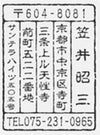 〒604-8081
京都市中京区寺町
三条上ル天性寺
前町五二二番地
サンテラハイツ五〇五号
笠井昭三
TEL075-231-0965